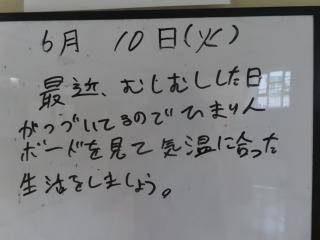 6月 10日(火)
最近、むしむしした日
がつづいてるのでひまり人
ボードを見て気温に合った
生活をしましょう。